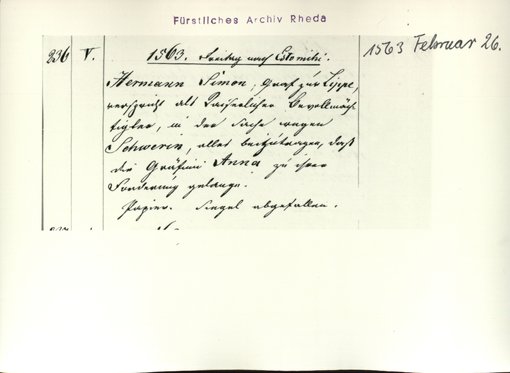 Fürstliches Archiv Rheda
236 V. 1563. Freitag nach Estomihi.
1563 Februar 26.
Hermann Simon, Graf zur Lippe,
verspricht als Kaiserlicher Bevollmäch-
tigter, in der Sache wegen
Schwerin, alles beizutragen, daß
die Gräfinn Anna zu ihrer
Forderung gelange.
Papier. Siegel abgefallen.